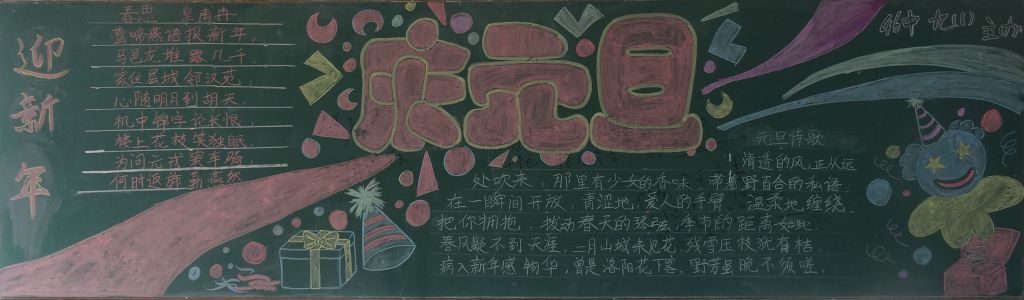 迎新年
春思 皇甫冉
莺啼燕语报新年,
马邑龙堆路几千.
家住层城邻汉苑,
心随明月到胡天.
机中锦字论长恨,
楼上花枝笑独眠.
为问元戎窦车骑,
何时返旆勒燕然
庆元旦
九(1)
主办
元旦诗歌
清逸的风,正从远
处吹来,那里有少女的香味,带着野百合的私语.
在一瞬间开放,青涩地,爱人的手臂,温柔地缠绕.
把你拥抱,拨动春天的琴弦,季节的距离如此
春风疑不到天涯 二月山城未见花 残雪压枝犹有桔
病入新年感物华,曾是洛阳花下客.野芳虽晚不须嗟.